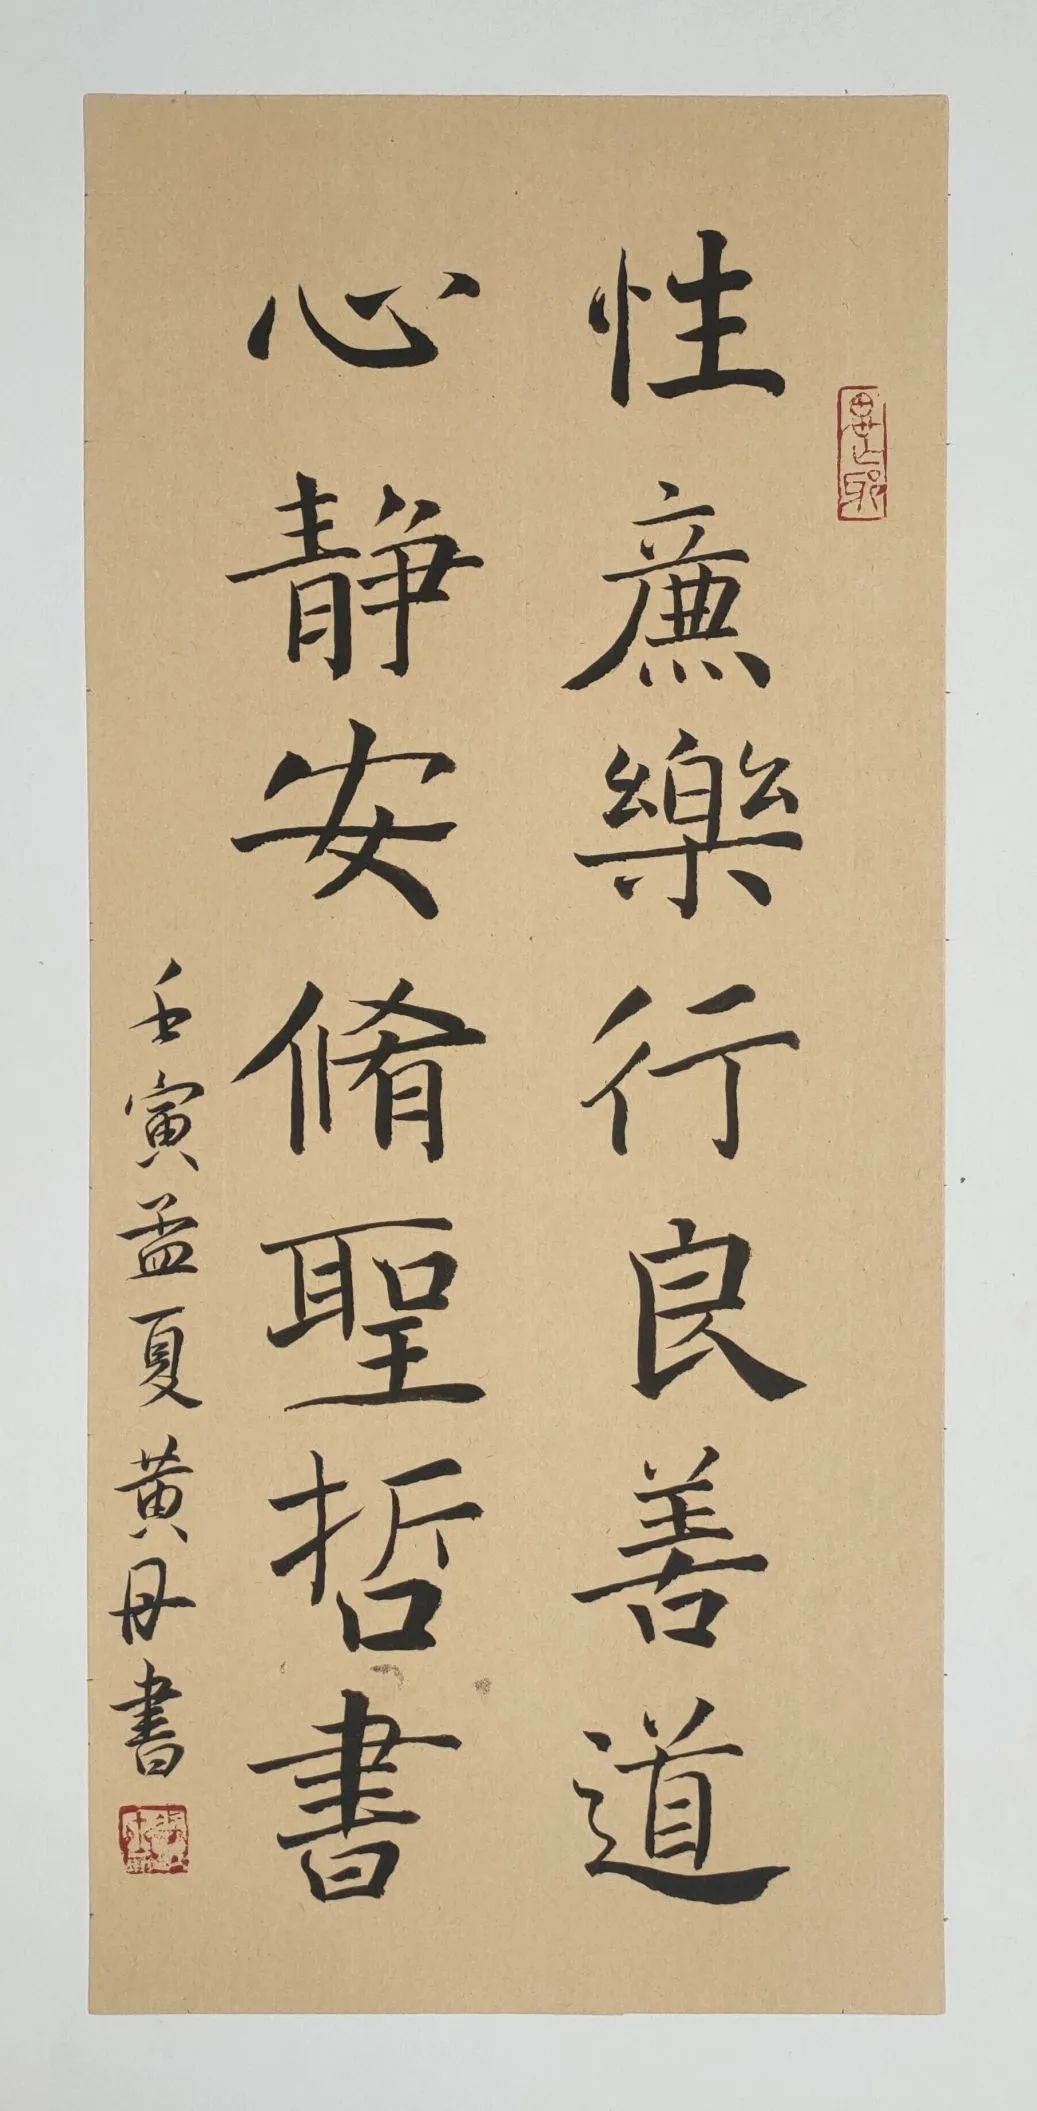 性廉樂行良善道
心靜安脩聖哲書
壬寅孟夏黄丹書